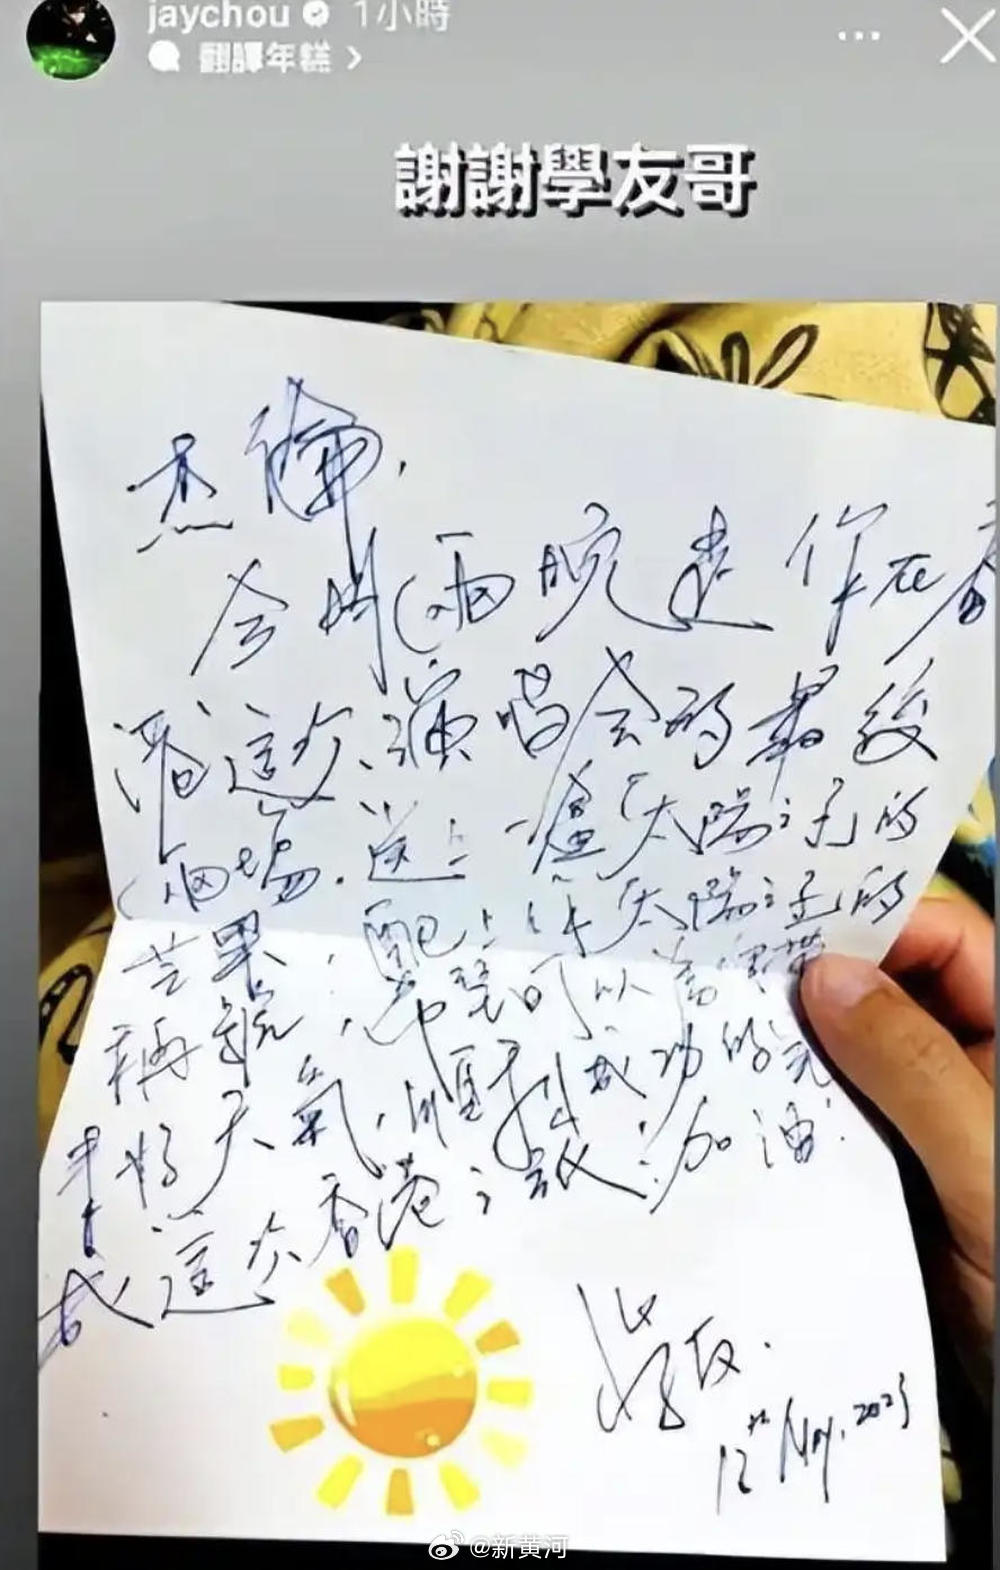 jaychou 1小時
翻譯年糕 >
謝謝學友哥
杰倫,
今明兩晚是你在香
港這次演唱會的最後
兩場,送上一盒太陽之子的
苹果,配上太陽之子的
稱號,也許可以為你帶
來好天氣,順利成功的完
成這次香港之旅!加油!
學友.
12th May, 2023
@新黄河